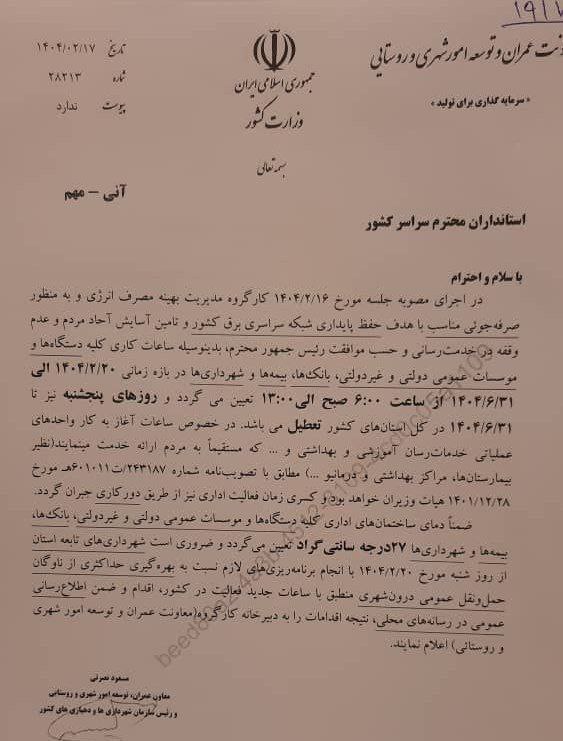 ۱۹/۱
جمهوری اسلامی ایران
وزارت کشور
تاریخ ۱۴۰۴/۰۲/۱۷
شماره ۲۸۲۱۳
پیوست ندارد
عمران و توسعه امور شهری و روستایی
« سرمایه گذاری برای تولید »
بسمه تعالی
آنی – مهم
استانداران محترم سراسر کشور
با سلام و احترام
در اجرای مصوبه جلسه مورخ ۱۴۰۴/۲/۱۶ کارگروه مدیریت بهینه مصرف انرژی و به منظور
صرفه‌جوئی مناسب با هدف حفظ پایداری شبکه سراسری برق کشور و تامین آسایش آحاد مردم و عدم
وقفه در خدمت‌رسانی و حسب موافقت رئیس جمهور محترم، بدینوسیله ساعات کاری کلیه دستگاه‌ها و
موسسات عمومی دولتی و غیردولتی، بانک‌ها، بیمه‌ها و شهرداری‌ها در بازه زمانی ۱۴۰۴/۲/۲۰ الی
۱۴۰۴/۶/۳۱ از ساعت ۶:۰۰ صبح الی ۱۳:۰۰ تعیین می گردد و روزهای پنجشنبه نیز تا
۱۴۰۴/۶/۳۱ در کل استان‌های کشور تعطیل می باشد. در خصوص ساعات آغاز به کار واحدهای
عملیاتی خدمات‌رسان آموزشی و بهداشتی و ... که مستقیماً به مردم ارائه خدمت مینمایند(نظیر
بیمارستان‌ها، مراکز بهداشتی و درمانیو ...) مطابق با تصویب‌نامه شماره ۲۴۳۱۸۷/ت۶۰۱۰۱۱هـ مورخ
۱۴۰۱/۱۲/۲۸ هیات وزیران خواهد بود و کسری زمان فعالیت اداری نیز از طریق دورکاری جبران گردد.
ضمناً دمای ساختمان‌های اداری کلیه دستگاه‌ها و موسسات عمومی دولتی و غیردولتی، بانک‌ها،
بیمه‌ها و شهرداری‌ها ۲۷درجه سانتی‌گراد تعیین می‌گردد و ضروری است شهرداری‌های تابعه استان
از روز شنبه مورخ ۱۴۰۴/۲/۲۰ با انجام برنامه‌ریزی‌های لازم نسبت به بهره‌گیری حداکثری از ناوگان
حمل‌ونقل عمومی درون‌شهری منطبق با ساعات جدید فعالیت در کشور، اقدام و ضمن اطلاع‌رسانی
عمومی در رسانه‌های محلی، نتیجه اقدامات را به دبیرخانه کارگروه(معاونت عمران و توسعه امور شهری
و روستائی) اعلام نمایند.
مسعود نصرتی
معاون عمران، توسعه امور شهری و روستایی
و رئیس سازمان شهرداری ها و دهیاری های کشور